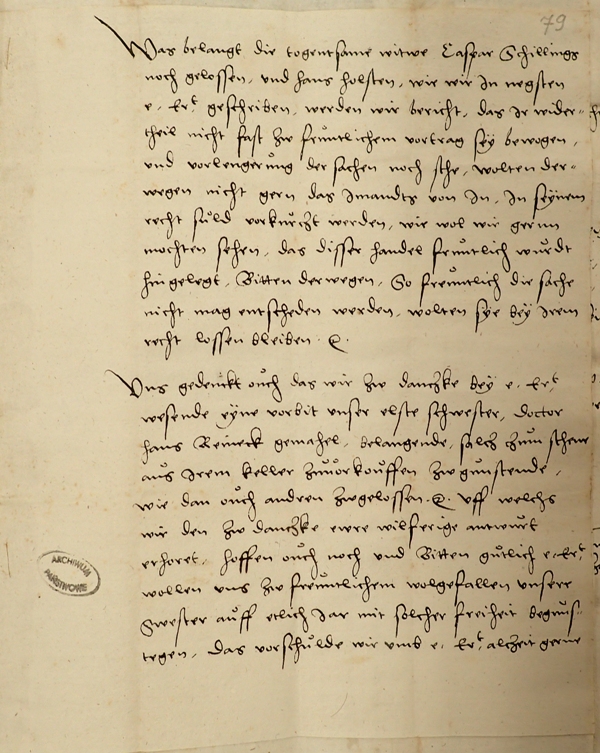 79
Was belangt die togentsame witwe Caspar Schillings
noch gelossen, und hans holsten, wie wir in negsten
e. Ert gescheiben, werden wir bericht, das ir wider-
theil nicht fast zw freuntlichem vortrag sey bewogen,
und vorlengerung der sachen noch sche, wolten der-
wegen nicht gern das imandts von in, in seynem
recht suld vorkurczt werden, wie wol wir gernn
mochten sehen, das disser handel freuntlich wurdt
hin gelegt, Bitten derwegen, So freuntlich die sache
nicht mag entscheden werden, wolten sye bey irem
recht lossen bleiben
Uns gedenckt ouch das wir zw danczke bey e. Ert
wesende eyne vorbit unser elste schwester, doctor
hans Reineck gemahel, belangende, salcz czum
aus irem keller zuvorkouffen zw gunstende,
wie dan ouch andren zwgelossen. Uff welchs
wir den zw danczke ewre wilferige antwurt
erhoret, hoffen ouch noch und Bitten gutlich e. Ert
wollen uns zw freuntlichem wolgefallen unsere
Swester auff etlich iar mit solcher freiheit beguns-
tegen, das vorschulde wir umb e. Ert alczeit gerne
ARCHIWUM
PAŃSTWOWE